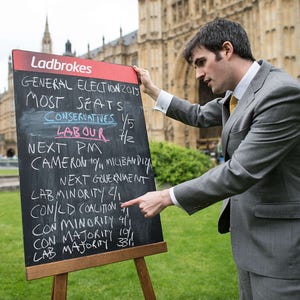 Ladbrokes
GENERAL ELECTION 2015
MOST SEATS
CONSERVATIVES 1/5
LABOUR 7/2
NEXT PM
CAMERON MILIBAND
NEXT GOVERNMENT
LAB MINORITY 2/1
CON/LD COALITION
CON MINORITY 4/1
CON MAJORITY
LAB MAJORITY 33/1